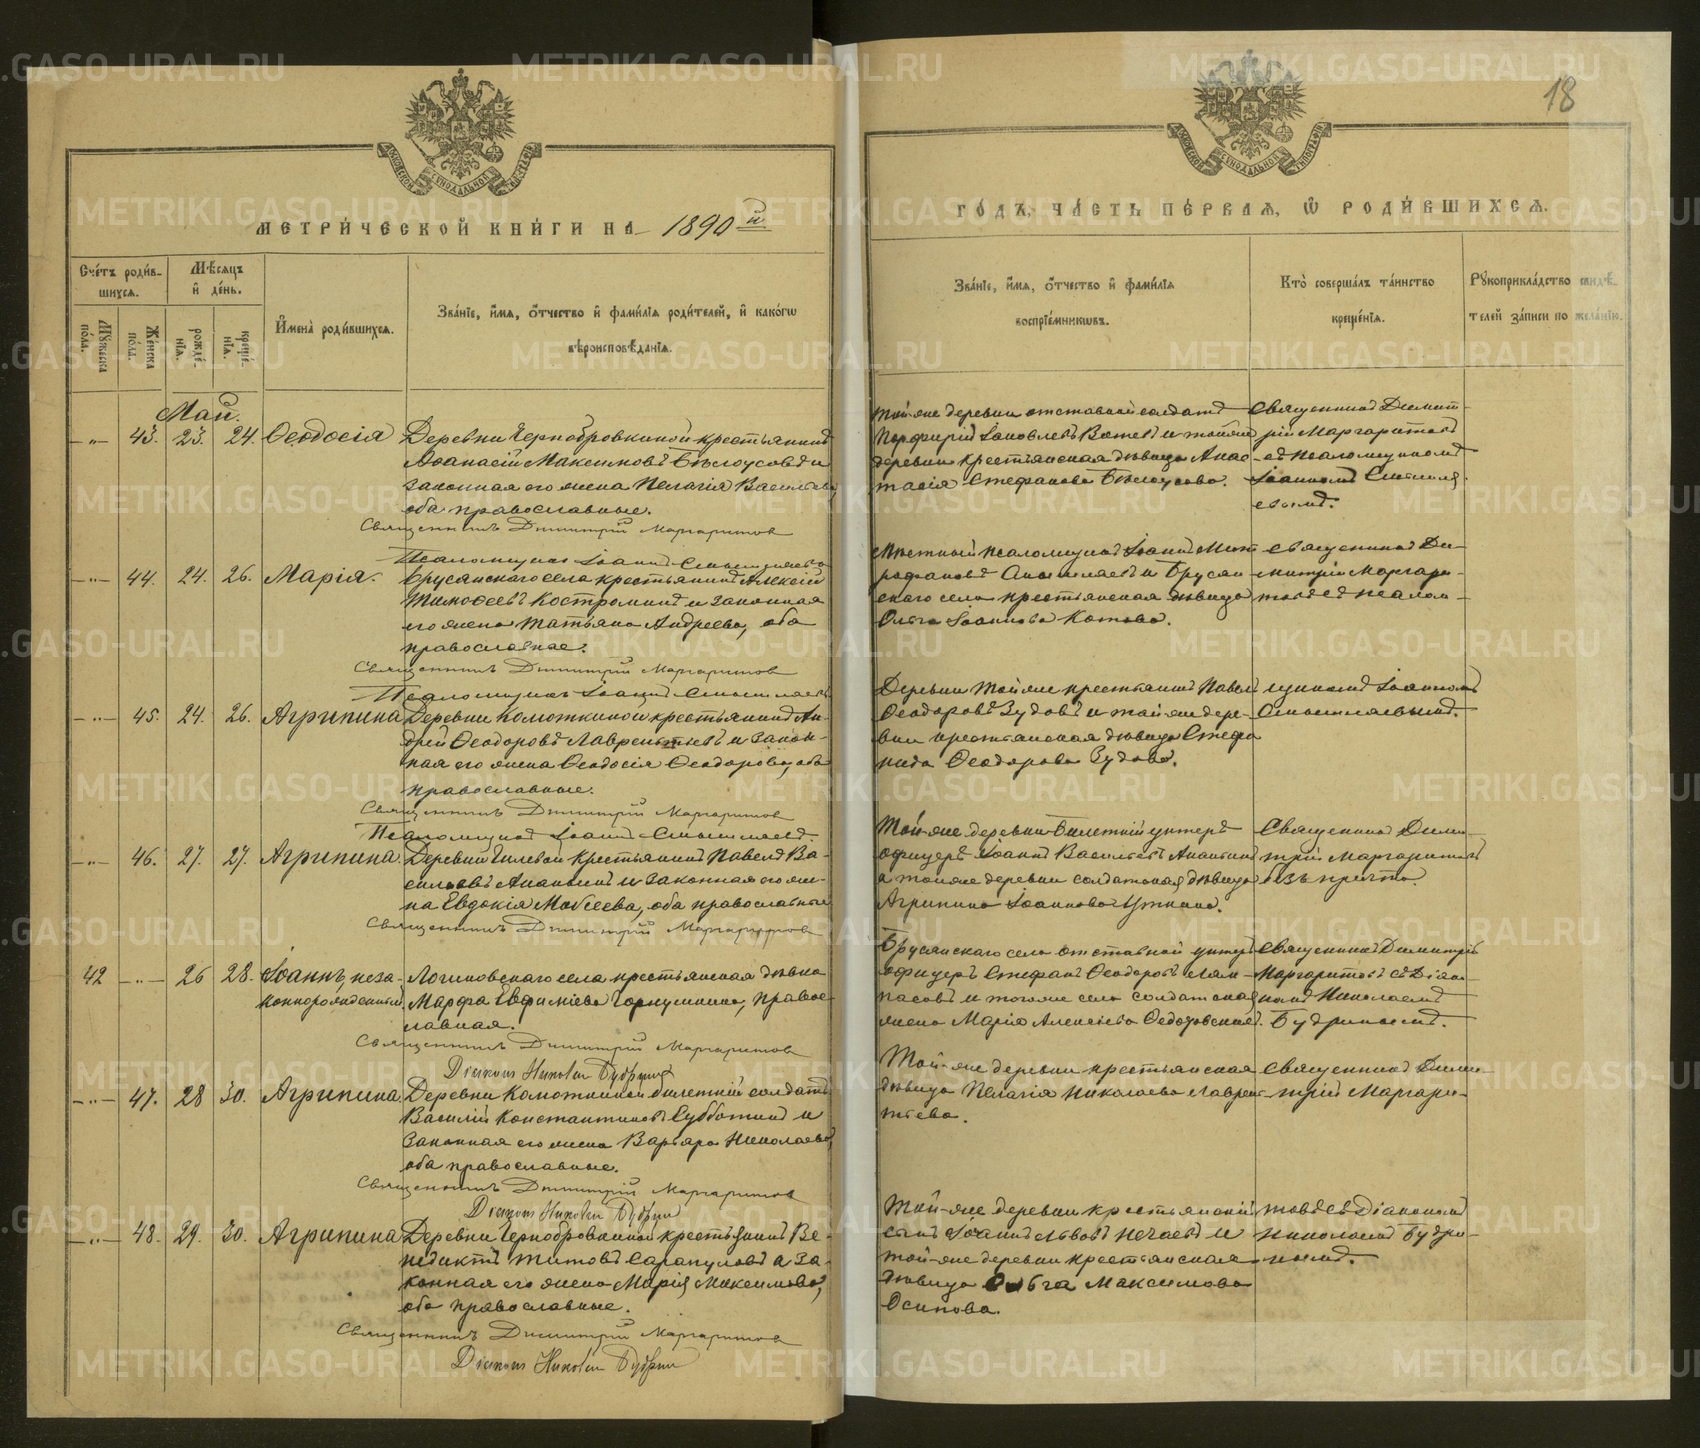 18
МЕТРИ́ЧЕСКОЙ КНИ́ГИ НА 1890й
Сче́тъ роди́в-
шихся.
Мѣ́сяцъ
и̂ де́нь.
Му́жеска
по́ла.
Же́нска
по́ла.
рожде́-
нїя.
креще́-
нїя.
И̂мена̀ роди́вшихся.
Зва́нїе, и̂́мя, ѻ̂́тчество и̂ фами́лїя роди́телей, и̂ како́гѡ
вѣроисповѣ́данїя.
Май.
-"- 43. 23. 24. Ѳеодосія
Деревни Чернобровкиной крестьянинъ
Аѳанасій Максимовъ Бѣлоусовъ и
законная его жена Пелагія Васильева
оба православные.
Священникъ Димитрій Маргаритовъ
Псаломщикъ Іоаннъ Смышляевъ
-"- 44. 24. 26. Марія.
Брусянскаго села крестьянинъ Алексій
Тимоѳеевъ Костроминъ и законная
его жена Татьяна Андреева, оба
православные.
Священникъ Димитрій Маргаритовъ
Псаломщикъ Іоаннъ Смышляевъ
-"- 45. 24. 26. Агрипина
Деревни Колюткиной крестьянинъ Ан-
дрей Ѳеодоровъ Лаврентьевъ и закон-
ная его жена Ѳеодосія Ѳеодорова, оба
православные.
Священникъ Димитрій Маргаритовъ
Псаломщикъ Іоаннъ Смышляевъ
-"- 46. 27. 27. Агрипина
Деревни Гилевой крестьянинъ Павелъ Ва-
сильевъ Ананьинъ и законная его же-
на Евдокія Моисеева, оба православные
Священникъ Димитрій Маргаритовъ
42 -"- 26 28. Іоаннъ, неза-
коннорожденный.
Логиновскаго села крестьянская дѣвка
Марфа Евфиміева Горнушкина, правос-
лавная.
Священникъ Димитрій Маргаритовъ
Діаконъ Николай Будринъ
-"- 47. 28 30. Агрипина
Деревни Колюткиной билетный солдатъ
Василій Константиновъ Субботинъ и
законная его жена Варвара Николаева,
оба православные.
Священникъ Димитрій Маргаритовъ
Діаконъ Николай Будринъ
-"- 48. 29. 30. Агрипина
Деревни Чернобровкиной крестьянинъ Ве-
недиктъ Титовъ Сарапуловъ и за-
конная его жена Марія Максимова,
оба православные.
Священникъ Димитрій Маргаритовъ
Діаконъ Николай Будринъ
ГО́ДЪ, ЧА́СТЬ ПЕ́РВАЯ, Ѡ̂ РОДИ́ВШИХСЯ.
Зва́нїе, и̂́мя, ѻ̂́тчество и̂ фами́лїя
воспрїе́мниковъ.
Кто̀ соверша́лъ та́инство
креще́нїя.
Рꙋкоприкла́дство свидѣ́-
телей за́писи по жела́нїю.
Той-же деревни отставной солдатъ
Порфирій Іаковлевъ Вотевъ и той же
деревни крестьянская дѣвица Анас-
тасія Стефанова Бѣлоусова.
Священникъ Димит-
рій Маргаритовъ
съ псаломщикомъ
Іоанномъ Смышля-
евымъ.
Мѣстный псаломщикъ Іоаннъ Мит-
рофановъ Смышляевъ и Брусян-
скаго села крестьянская дѣвица
Ольга Іоаннова Котова.
Священникъ Ди-
митрій Маргари-
товъ съ псалом-
Деревни той же крестьянинъ Павелъ
Ѳеодоровъ Зудовъ и той-же дере-
вни крестьянская дѣвица Стефа-
нида Ѳеодорова Зудова.
щикомъ Іоанномъ
Смышляевымъ.
Той-же деревни билетный унтеръ
офицеръ Іоаннъ Васильевъ Ананьинъ
и той же деревни солдатская дѣвица
Агрипина Іоаннова Уткина.
Священникъ Дими-
трій Маргаритовъ
безъ причта.
Брусянскаго села отставной унтеръ
офицеръ Стефанъ Ѳеодоровъ Лям-
пасовъ и тогоже села солдатская
жена Марія Алексіева Ѳедотовская.
Священникъ Димитрій
Маргаритовъ съ Діако-
номъ Николаемъ
Будринымъ.
Той-же деревни крестьянская
дѣвица Пелагія Николаева Лаврен-
тьева.
Священникъ Дими-
трій Маргари-
Той-же деревни крестьянскій
сынъ Іоаннъ Львовъ Нечаевъ и
той-же деревни крестьянская
дѣвица Ольга Максимова
Осипова.
товъ съ Діакономъ
Николаемъ Будри-
нымъ.
METRIKI.GASO-URAL.RU